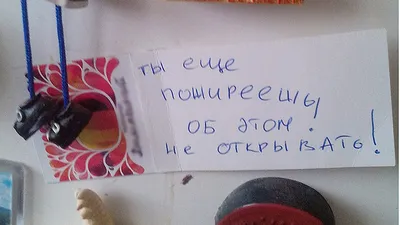 ты еще
пожиреешь
об этом.
не открывать!